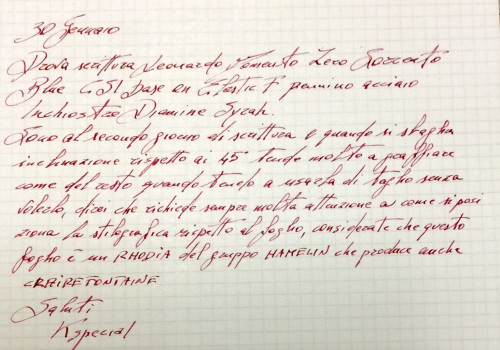 30 Gennaio
Prova scrittura Leonardo Momento Zero Sorrento
Blue CSI base en Elastic F pennino acciaio
Inchiostro Diamine Syrah.
Sono al secondo giorno di scrittura e quando si sbaglia
inclinazione rispetto ai 45° tende molto a graffiare
come del resto quando tendo a usarla di taglio senza
volerlo, direi che richiede sempre molta attenzione a come si posi
ziona la stilografica rispetto al foglio, considerate che questo
foglio è un RHODIA del gruppo HAMELIN che produce anche
CLAIREFONTAINE
Saluti
Kspecial